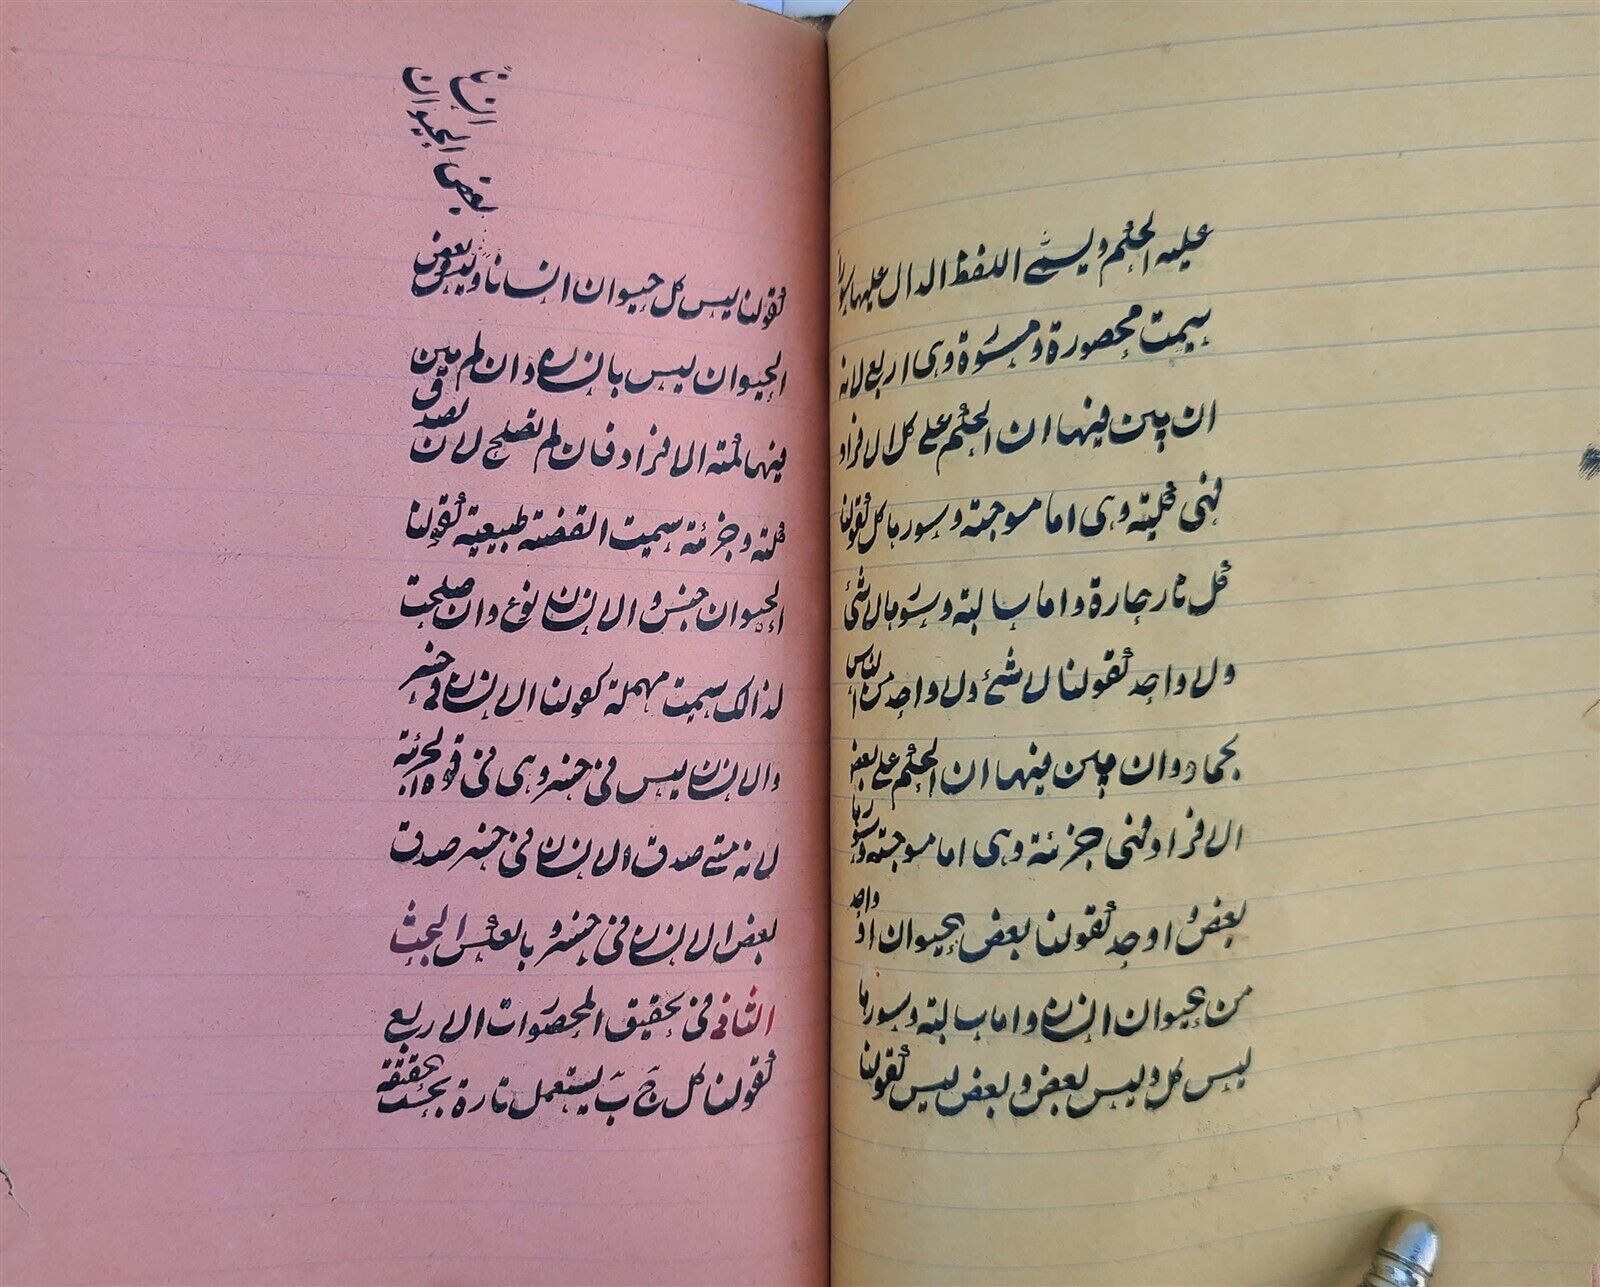 عليه الحكم ويسمى اللفظ الدال عليها سورا
سميت محصورة ومسورة وهى اربع لانه
ان بين فيها ان الحكم على كل الافراد
فهى كلية وهى اما موجبة وسورها كل كقولنا
كل نار حارة واما سالبة وسورها لا شئ
ولا واحد كقولنا لا شئ ولا واحد من الناس
بجماد وان بين فيها ان الحكم على بعض
الافراد فهى جزئية وهى اما موجبة وسورها
بعض و واحد كقولنا بعض الحيوان او واحد
من الحيوان انسان واما سالبة وسورها
ليس كل وليس بعض وبعض ليس كقولنا
كقولنا ليس كل حيوان انسانا وليس بعض
الحيوان ليس بانسان وان لم يبين
فيها كمية الافراد فان لم تصلح لان تصدق
كلية وجزئية سميت القضية طبيعية كقولنا
الحيوان جنس والانسان نوع وان صلحت
لذالك سميت مهملة كقولنا الانسان فى خسر
والانسان ليس فى خسر وهى فى قوة الجزئية
لانه متى صدق الانسان فى خسر صدق
بعض الانسان فى خسر وبالعكس البحث
الثانى فى تحقيق المحصورات الاربع
كقولنا كل ج ب يستعمل تارة بحسب الحقيقة
بعض الحيوان
انسانا